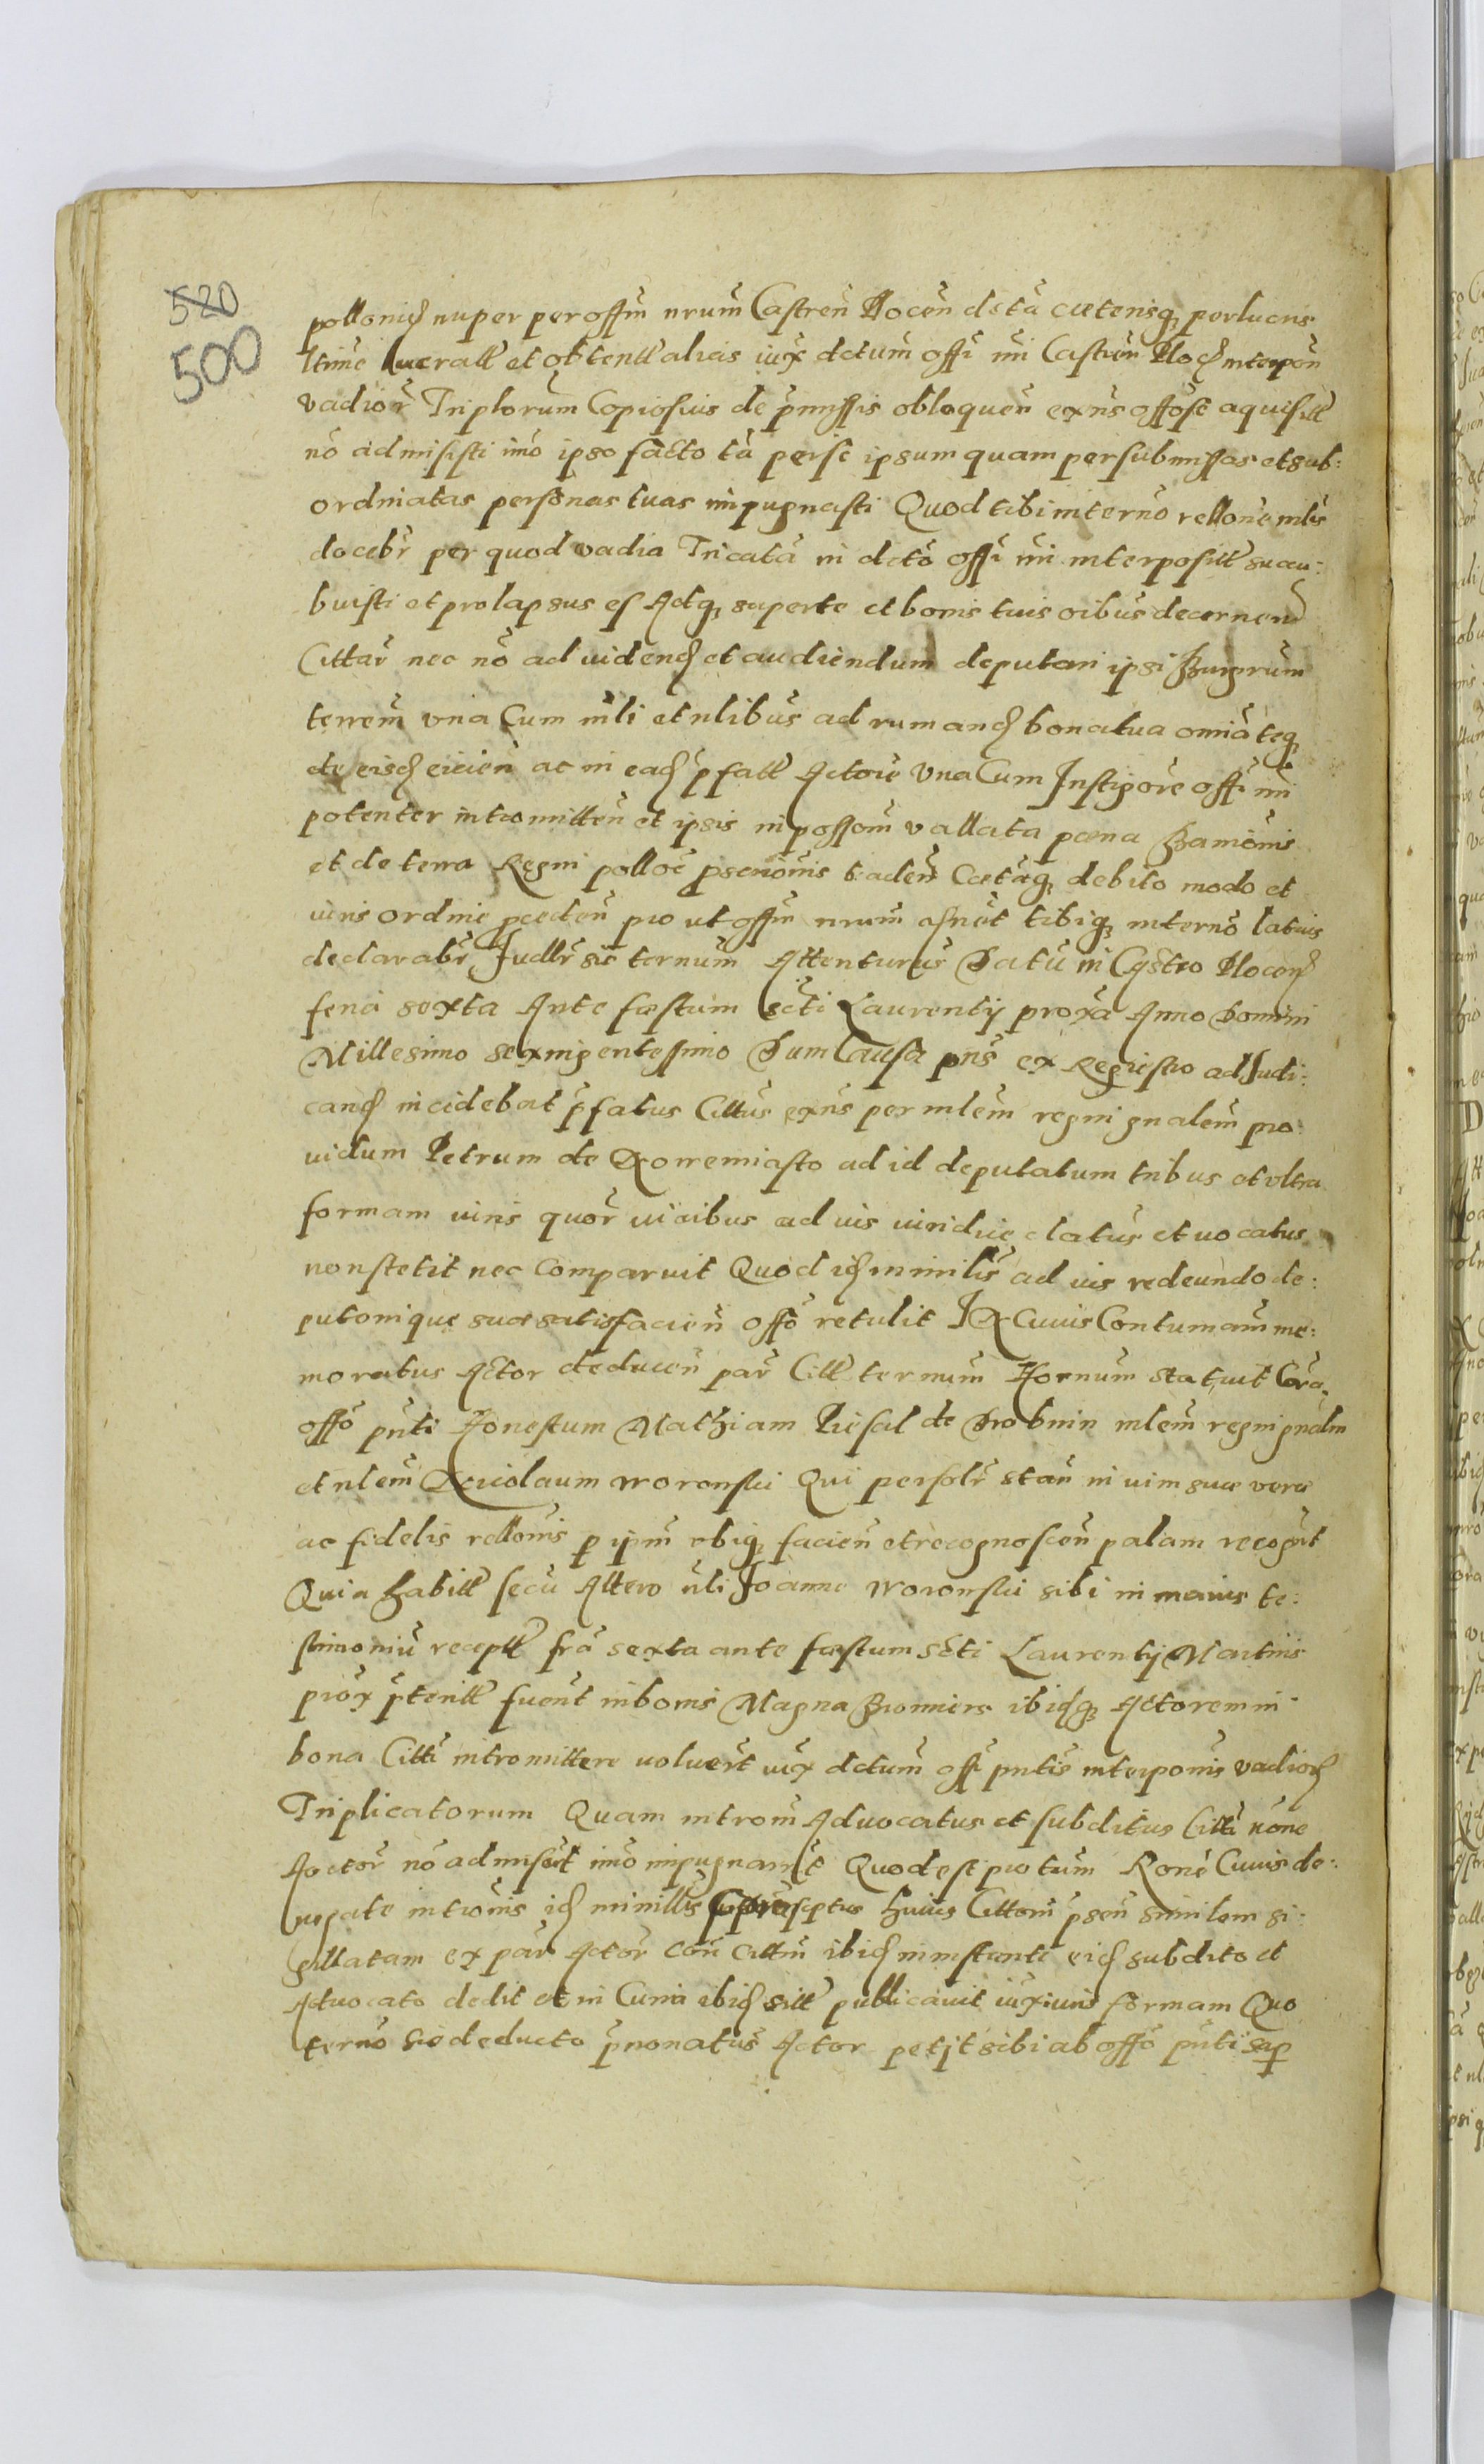 520
500
pollonicę nuper per offm nrum Castren Plocen dcta cætensq perlucns
ltime lucratt et obtentt alias iux dctum offi nri Castren Ploc interpon
vadior Triplorum Copiosius de pmissis obloquen exns offose aquisitt
no admisisti imo ipso facto ta perse ipsum quam persubmissas et sub:
ordinatas personas tuas impugnasti Quod tibi interno rellone mlis
docebr per quod vadia Tricata in dcto offi nri interpositt succu:
buisti et prolapsus es Adq superte et bonis tuis oibus decernen
Cittar nec no ad uidend et audiendum deputari ipsi Burgrum
terrem una Cum mli et nlibus ad rumand bona tua omia teq
de eisd eiicien ac in ead pfatt Actore Una Cum Instigore offi nri
potenter intromitten et ipsis in possom vallata pœna Banionis
et de terra Regni polloe pscrionis traden Cætaq debito modo et
iuris ordine pceden pro ut offm nrum tibiq interno latius
declarabr Judlr sis ternum Attenturus Datu in Castro Plocen
feria sexta Ante fæstum scti Laurentij proxa Anno Domini
Millesimo sexingentessimo Dum Causa pns ex Regestro ad Judi:
cand incidebat pfatus Cittus exns per mlem regni gnalem pro:
uidum Petrum de Xonemiasto ad id deputatum tribus et vltra
formam iuris quor uicibus ad ius uiridice clatus et uocatus
non stetit nec Comparuit Quod id minilis ad ius redeundo de:
putonique suæ satisfacien offo retulit In Cuius Contumam me:
moratus Actor deducen par Citt ternum Hornum statuit Cora
offo pnti Honestum Mathiam Piesal de Drobnin mlem regni gnalm
et nlem Nicolaum woronski Qui persolr stan in uim suæ veræ
ac fidelis rellonis p ipm obiq facien et recognoscen palam recogvt
Quia habitt secu Altero nli Joanne woronski sibi in maius te:
stimoniu receptt fra sexta ante fæstum scti Laurentij Martiris
prox pteritt fuert in bonis Magna Bromiers ibidq Actorem in
bona Citti intromittere uoluert iux dctum offi pntis interponis vadiord
Triplicatorum Quam introm Advocatus et subditus Citti none
Actor no admisert imo impugnarunt Quod est protum Rone Cuius de:
negate intronis id minillis suprascptus huius Cittom psen similem si:
gillatam ex par Actor con cittm ibid in instanti eid subdito et
Advocato dedit et in Curia ibid sitt publicauit iux iuris formam Quo
terno sic deducto pnonatus Actor petijt sibi ab offo pnti sup